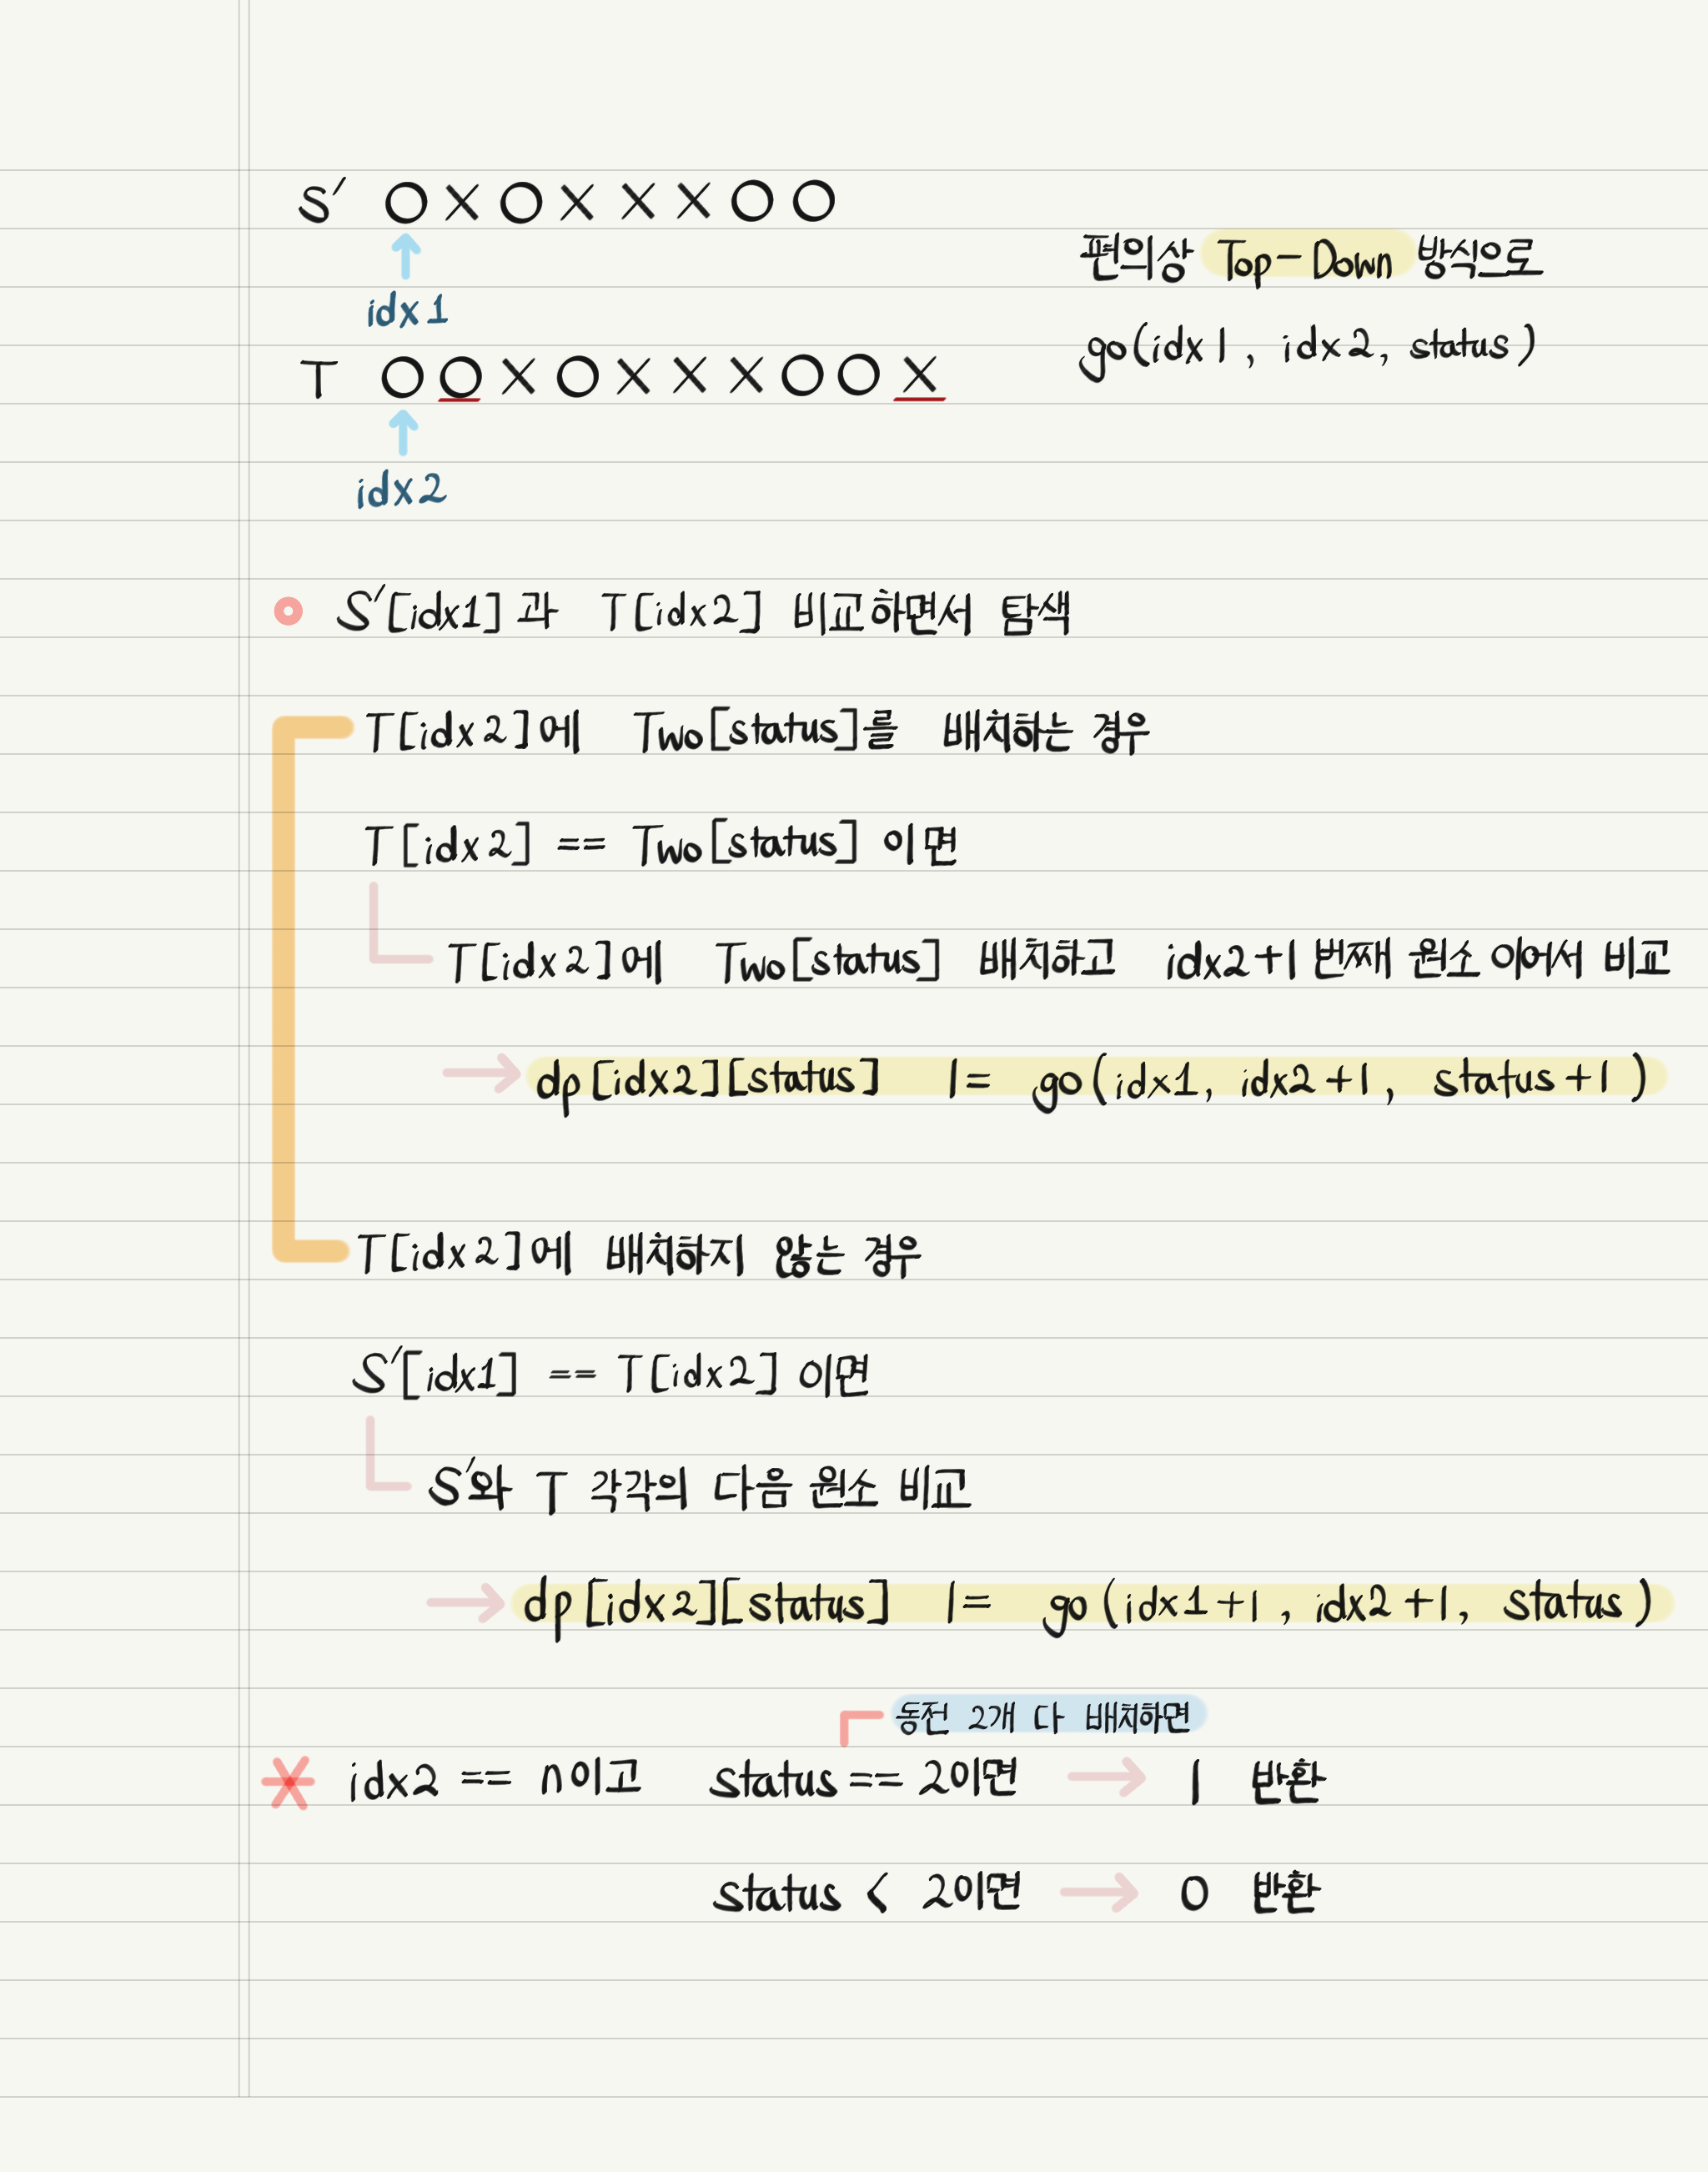 S′ O X O X X X O O
idx1
편의상 Top-Down 방식으로
go(idx1, idx2, status)
T O O X O X X X O O X
idx2
S′[idx1]과 T[idx2] 비교하면서 탐색
T[idx2]에 Two[status]를 배치하는 경우
T[idx2] == Two[status] 이면
T[idx2]에 Two[status] 배치하고 idx2+1 번째 원소 이어서 비교
→ dp[idx2][status] |= go(idx1, idx2+1, status+1)
T[idx2]에 배치하지 않는 경우
S′[idx1] == T[idx2] 이면
S′와 T 각각의 다음 원소 비교
→ dp[idx2][status] |= go(idx1+1, idx2+1, status)
동전 2개 다 배치하면
idx2 == n이고 status == 2이면 → 1 반환
status < 2이면 → 0 반환